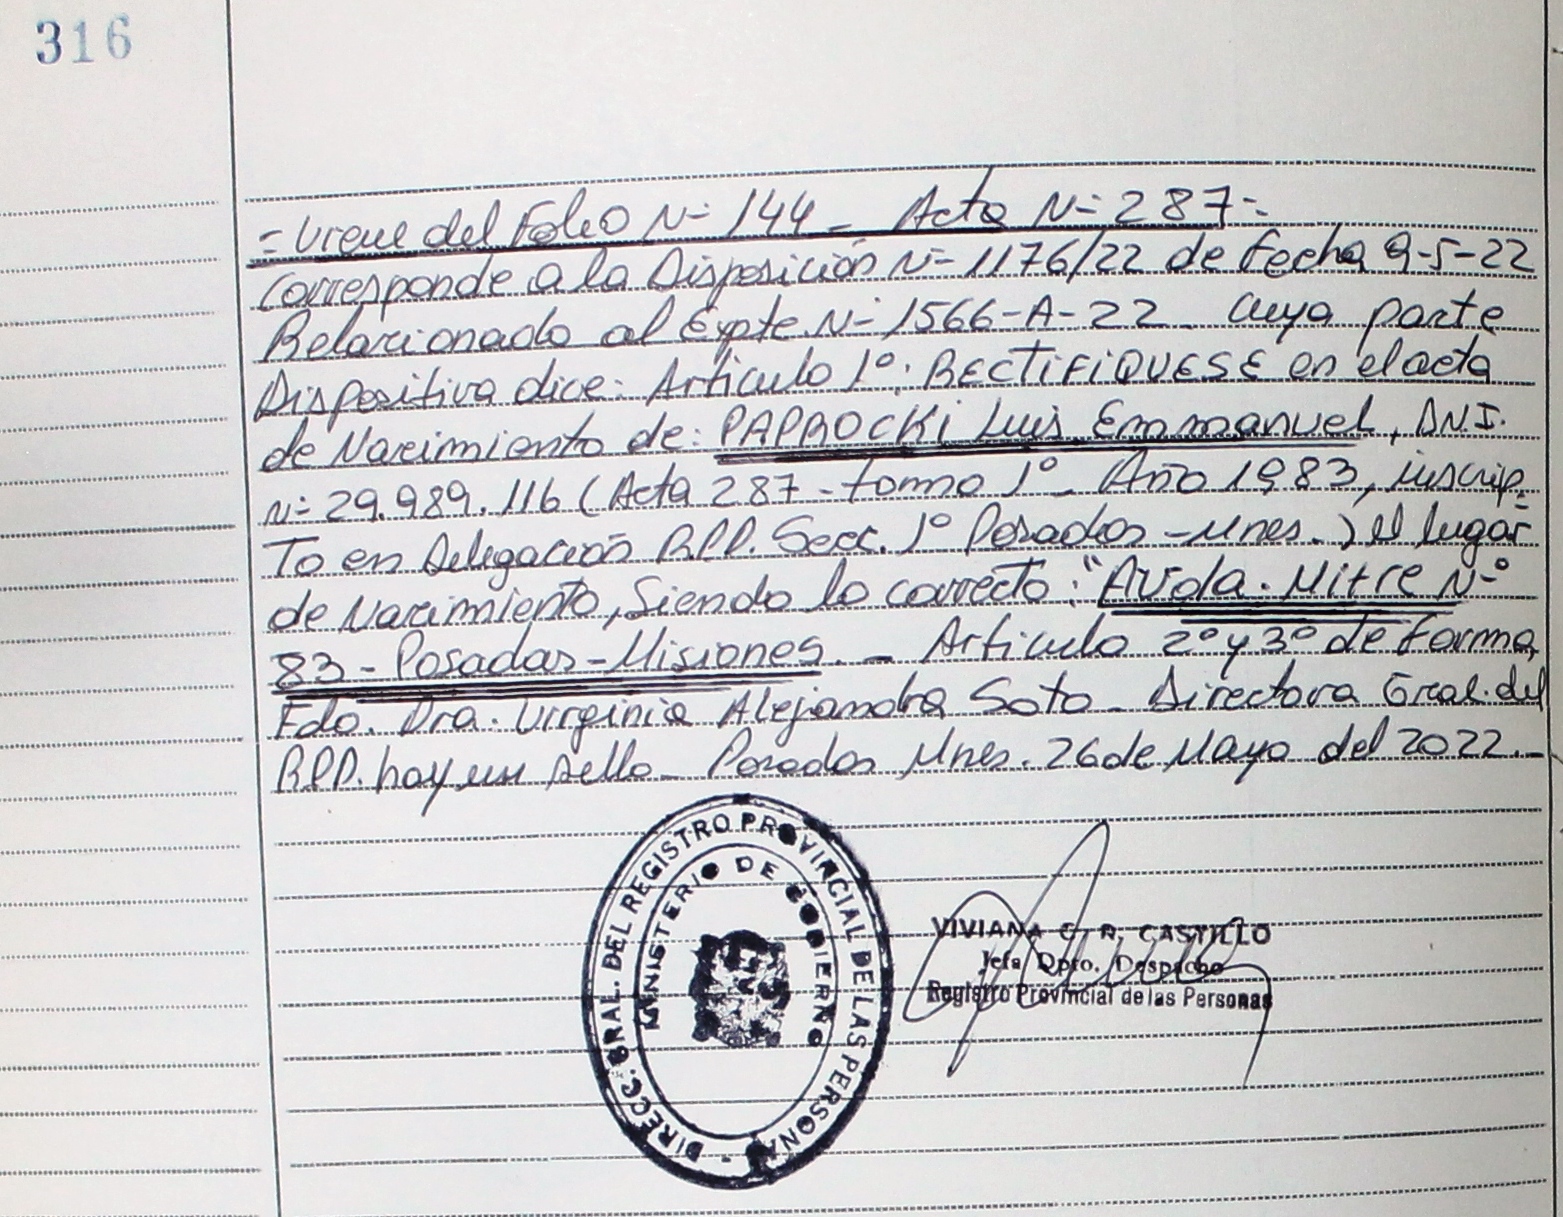 316
= Viene del Folio Nº 144 - Acta Nº 287 =
Corresponde a la Disposición Nº 1176/22 de Fecha 9-5-22
Relacionado al Expte. Nº 1566-A-22 - Cuya parte
Dispositiva dice: Artículo 1º: RECTIFIQUESE en el acta
de Nacimiento de: PAPROCKI Luis Emmanuel, D.N.I.
Nº 29.989.116 (Acta 287 - tomo 1º - Año 1983, inscrip-
To en Delegación R.P.P. Secc. 1º Posadas - Mnes.) el lugar
de Nacimiento, Siendo lo correcto: "AVda. Mitre Nº
83 - Posadas - Misiones. - Artículo 2º y 3º de Forma,
Fdo. Dra. Virginia Alejandra Soto - Directora Gral. del
R.P.P. hay un sello - Posadas Mnes. 26 de Mayo del 2022. -
DIRECC. GRAL. DEL REGISTRO PROVINCIAL DE LAS PERSONAS -
MINISTERIO DE GOBIERNO
VIVIANA C. R. CASTILLO
Jefa Dpto. Despacho
Registro Provincial de las Personas